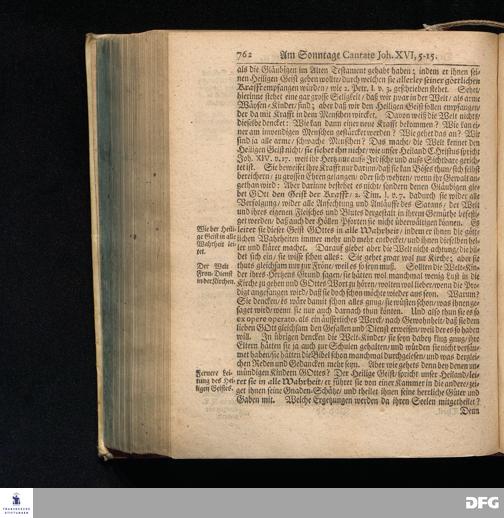 762 Am Sonntage Cantate Joh. XVI, 5-15.
als die Gläubigen im Alten Testament gehabt haben; indem er ihnen sei-
nen Heiligen Geist geben wollte/ durch welchen sie allerley seiner göttlichen
Krafft empfangen würden/ wie 2. Petr. I. v. 3. geschrieben stehet. Sehet/
hierinne stehet eine gar grosse Seligkeit/ daß wir zwar in der Welt/ als arme
Wäysen-Kinder/ sind; aber daß wir den Heiligen Geist zum Trost sollen empfangen/
der da mit Krafft in dem Menschen wircket. Davon weiß die Welt nichts/
dieselbe dencket: Wie kan dann einer neue Krafft bekommen? Wie kan ei-
ner am inwendigen Menschen gestärcket werden? Wie gehet das an? Wir
sind ja alle arme/ schwache Menschen? Das macht/ die Welt kennet den
Heiligen Geist nicht/ sie siehet ihn nicht/ wie unser Heiland Christus spricht
Joh. XIV. v. 17. weil ihr Hertz nur aufs Irdische und aufs Sichtbare gerich-
tet ist. Sie beweiset ihre Krafft nur darinn/ daß sie kan Böses thun/ sich selbst
bereichern/ zu grossen Ehren gelangen/ oder sich wehren/ wenn ihr Gewalt an-
gethan wird: Aber darinne bestehet es nicht/ sondern denen Gläubigen gie-
bet GOtt den Geist der Krafft/ 2. Tim. I. v. 7. dadurch sie wider alle
Verfolgung/ wider alle Anfechtung und Anläuffe des Satans/ der Welt
und ihres eigenen Fleisches und Blutes dergestalt in ihrem Gemüthe befesti-
get werden/ daß auch der Höllen Pforten sie nicht überwältigen können. Es
Wie der Heili-
ge Geist in alle
Wahrheit lei-
tet.
leitet sie dieser Geist GOttes in alle Wahrheit/ indem er ihnen die gött-
lichen Wahrheiten immer mehr und mehr entdecket/ und ihnen dieselben hel-
ler und klärer machet. Darauf giebet aber die Welt nicht achtung/ die bil-
det sich ein/ sie wisse schon alles: Sie gehet zwar wol zur Kirche; aber sie
Der Welt
Fron-Dienst
in der Kirchen.
thuts gleichsam nur zur Fröne/ weil es so seyn muß. Sollten die Welt-Kin-
der ihres Hertzens Grund sagen/ sie hätten wol manchmal wenig Lust in die
Kirche zu gehen und GOttes Wort zu hören/ wolten wol lieber/ wenn die Pre-
digt angefangen wird/ daß sie doch schon möchte wieder aus seyn. Warum?
Sie dencken/ es wäre damit schon alles gnug/ sie wüsten schon/ was ihnen ge-
saget wird/ wenn sie nur auch darnach thun könten. Und also thun sie es so
ex opere operato, als ein äusserliches Werck/ nach Gewohnheit/ daß sie dem
lieben GOtt gleichsam den Gefallen und Dienst erweisen/ weil der es so haben
will. Im übrigen dencken die Welt-Kinder/ sie seyn dabey klug gnug/ ihre
Eltern hätten sie ja auch zur Schulen gehalten/ und würden sie nicht versäu-
met haben/ sie hätten die Bibel schon manchmal durchgelesen/ und was derglei-
chen Reden und Gedancken mehr seyn. Aber wie gehets denn bey denen un-
Fernere Lei-
tung des Hei-
ligen Geistes.
mündigen Kindern GOttes? Der Heilige Geist/ spricht unser Heiland/ lei-
tet sie in alle Wahrheit/ er führet sie von einer Kammer in die andere/ zei-
get ihnen seine Gnaden-Schätze/ und theilet ihnen seine herrliche Güter und
Gaben mit. Welche Ergetzungen werden da ihren Seelen mitgetheilet?
Denn
FRANCKESCHE
STIFTUNGEN
DFG